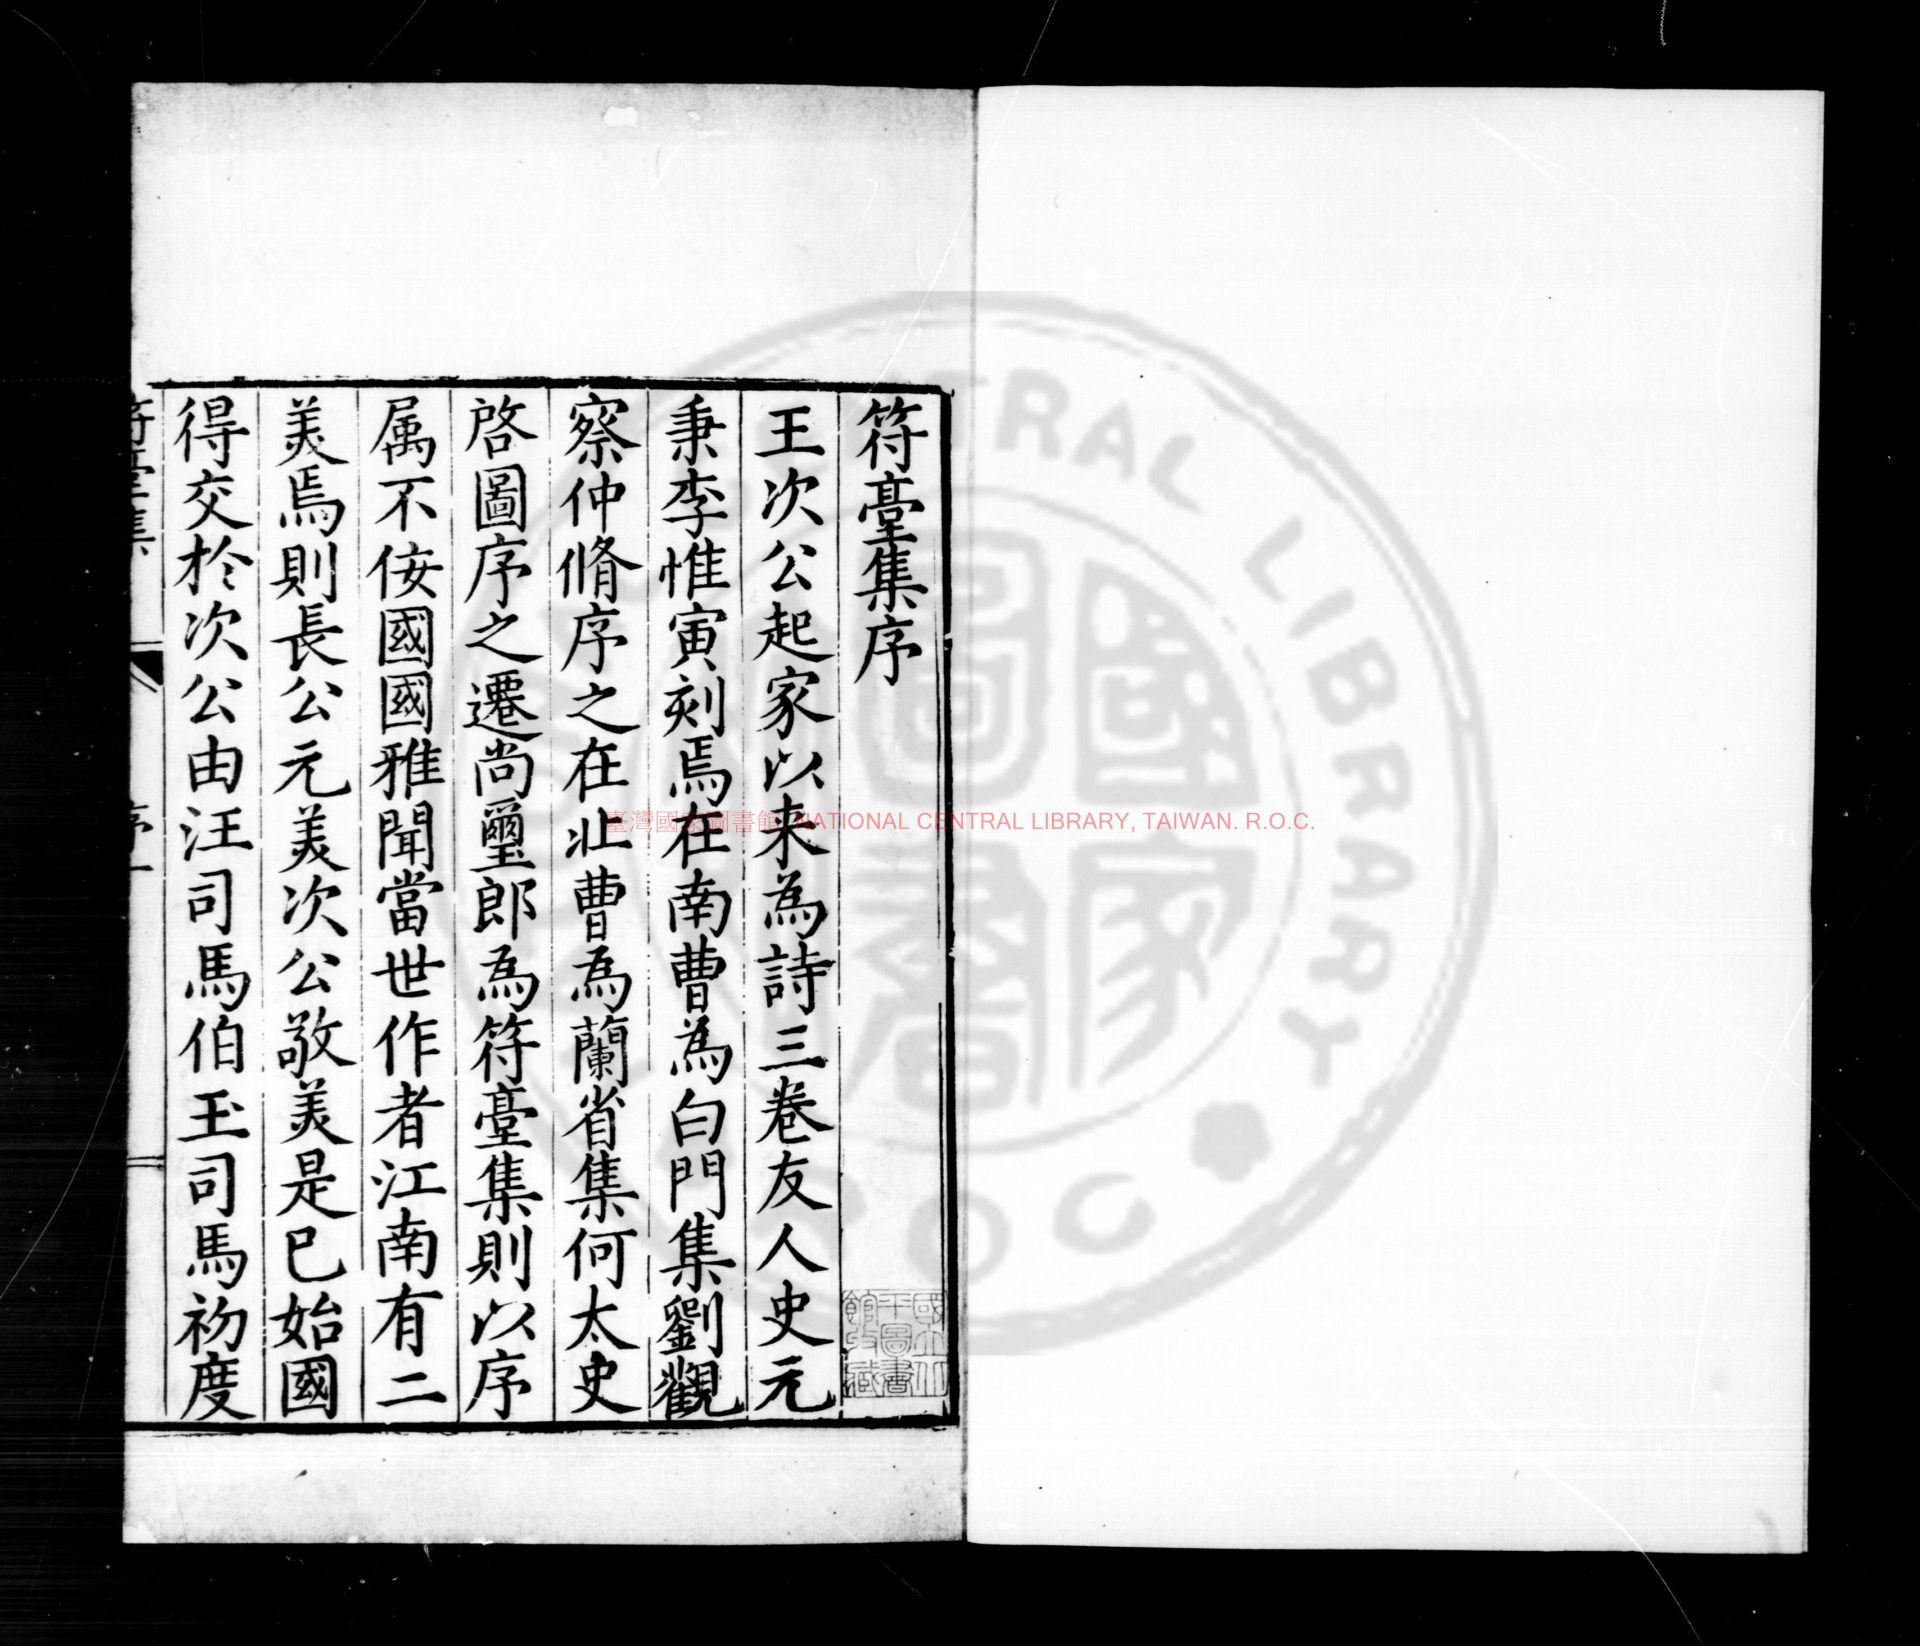 符臺集序
王次公起家以来為詩三卷友人史元
秉李惟寅刻焉在南曹為白門集劉觀
察仲脩序之在北曹為蘭省集何太史
啓圖序之遷尚璽郎為符臺集則以序
属不佞國國雅聞當世作者江南有二
美焉則長公元美次公敬美是已始國
得交於次公由汪司馬伯玉司馬初度
符臺集
序一
臺灣國家圖書館, NATIONAL CENTRAL LIBRARY, TAIWAN. R.O.C.
國立北
平圖書
館收藏